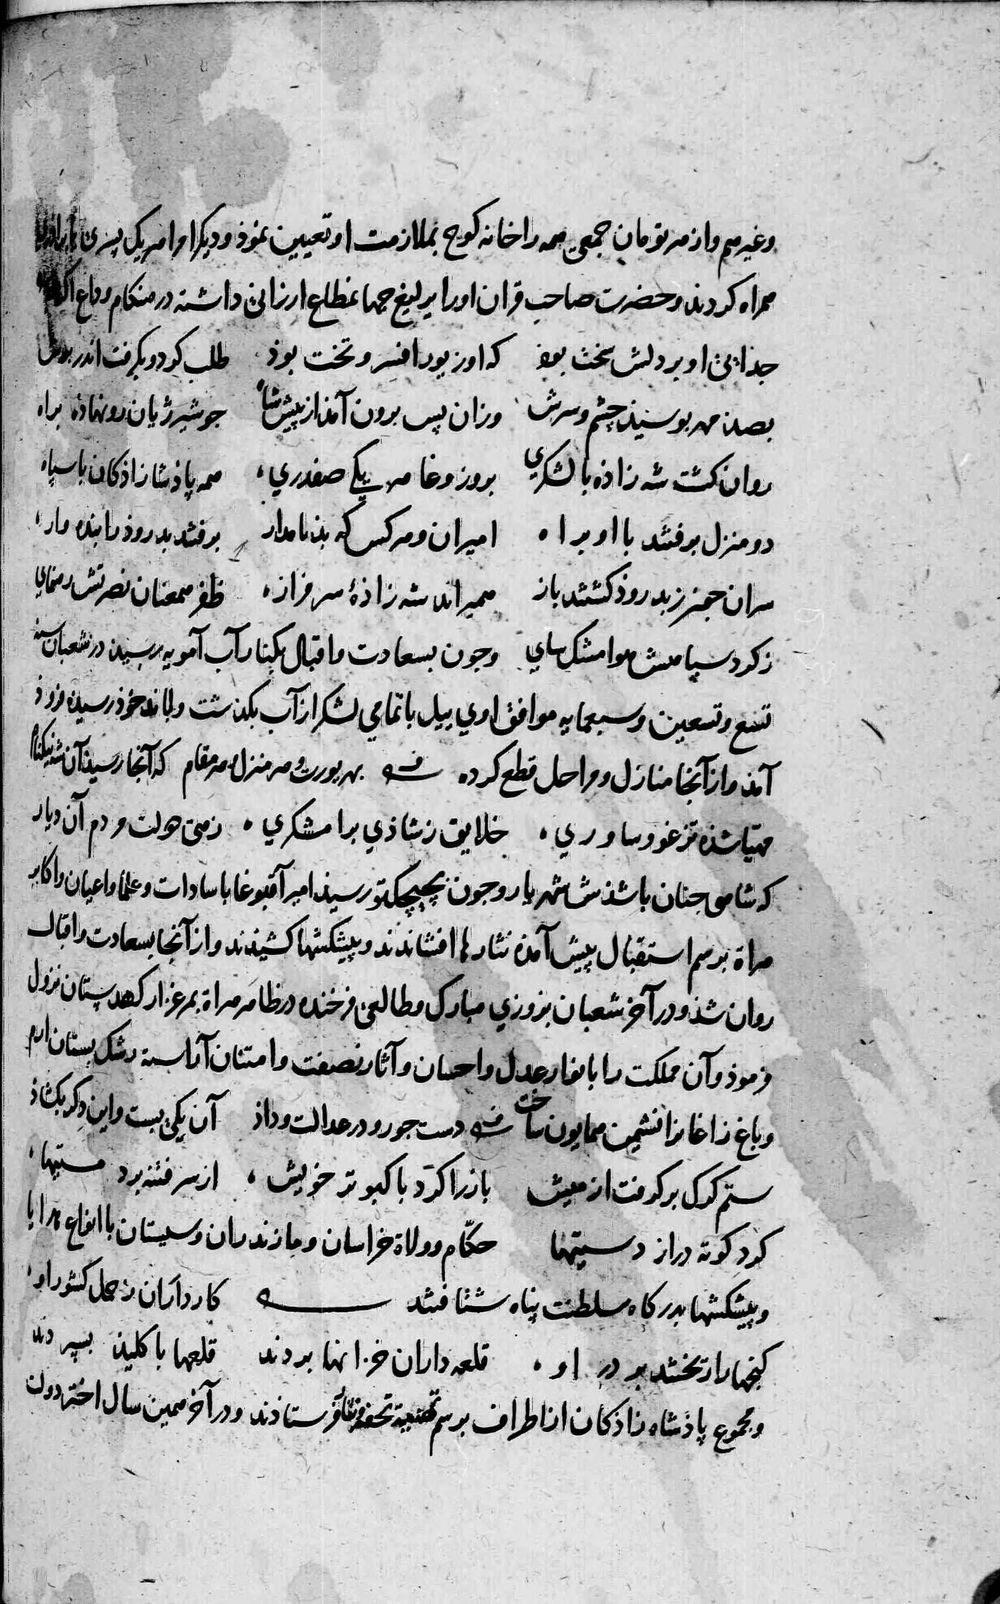 وغیرهم واز هر تومان جمعی همه را خانه کوج بملازمت او تعیین نموذ ودیکر امرا هر یک پسری یا برادری
همراه کردند وحضرت صاحب قران اورا یرلیغ جهانمطاع ارزانی داشته در هنکام وداع
جذایئ او بر دلش سخت بوذ که او زیور افسر وتخت بوذ طلب کرد وبکرفت اندر برش
بصد مهر بوسیذ چشم وسرش وزان پس برون آمذ از پیش شاه جو شیر ژیان رو نهاذه براه
روان کشت شه زاذه با لشکری بروز وغا هر یکی صفدری همه پاذشا زاذکان با سپاه
دو منزل برفتند با او براه امیران وهر کس که بذ نامدار برفتند بدروذ را بنده وار
سران جمز زبدروذ کشتند باز همیراند شه زاذهٔ سرفراز ظفر همعنان نصرتش رهنمای
ز کرد سپاهش هوا مشک سای وجون بسعادت واقبال بکنار آب آمویه رسید در شعبان سنه
تسع وتسعین وسبعمایه موافق اوی ییل با تمامی لشکر از آب بکذشت وباندخوذ رسیده فروذ
آمذ واز آنجا منازل ومراحل قطع کرده بهر یورت وهر منزل وهر مقام که آنجا رسیذ آن شه نیکنام
مهیا شذه تزغو وساوری خلایق ز شاذی برامشکری زهی دولت ودم آن دیار
که شاهی جنان باشذش شهریار وجون بچیچکتو رسیذ امیر آقبوغا با سادات وعلما واعیان واکابر
هراة برسم استقبال پیش آمذه نثارها افشاندند وپیشکشها کشیذند واز آنجا بسعادت واقبال
روان شذ ودر آخر شعبان بروزی مبارک وطالعی فرخنده در ظاهر هراة بمرغزار کهدستان نزول
فرموذ وآن مملکت را بانوار عدل واحسان وآثار نصفت وامتنان آراسته رشک بستان ارم
وباغ زاغانرا نشیمن همایون ساخت دست جور ودر عدالت وداذ آن یکی بست واین دکر بکشاذ
ستم کرک بر کرفت از میش باز را کرد با کبوتر خویش از سر فتنه برد مستیها
کرد کوته دراز دستیها حکّام وولاة خراسان ومازندران وسیستان با انواع هدایا
وپیشکشها بدرکاه سلطنت پناه شتافتند کارداران ز حمل کشور او
کنجها ریختند بر در او قلعه داران خزانها بردند قلعها با کلید بسپردند
ومجموع پاذشاه زاذکان از اطراف برسم تهنیه تحفه فرستاذند ودر آخر همین سال اختر دولت